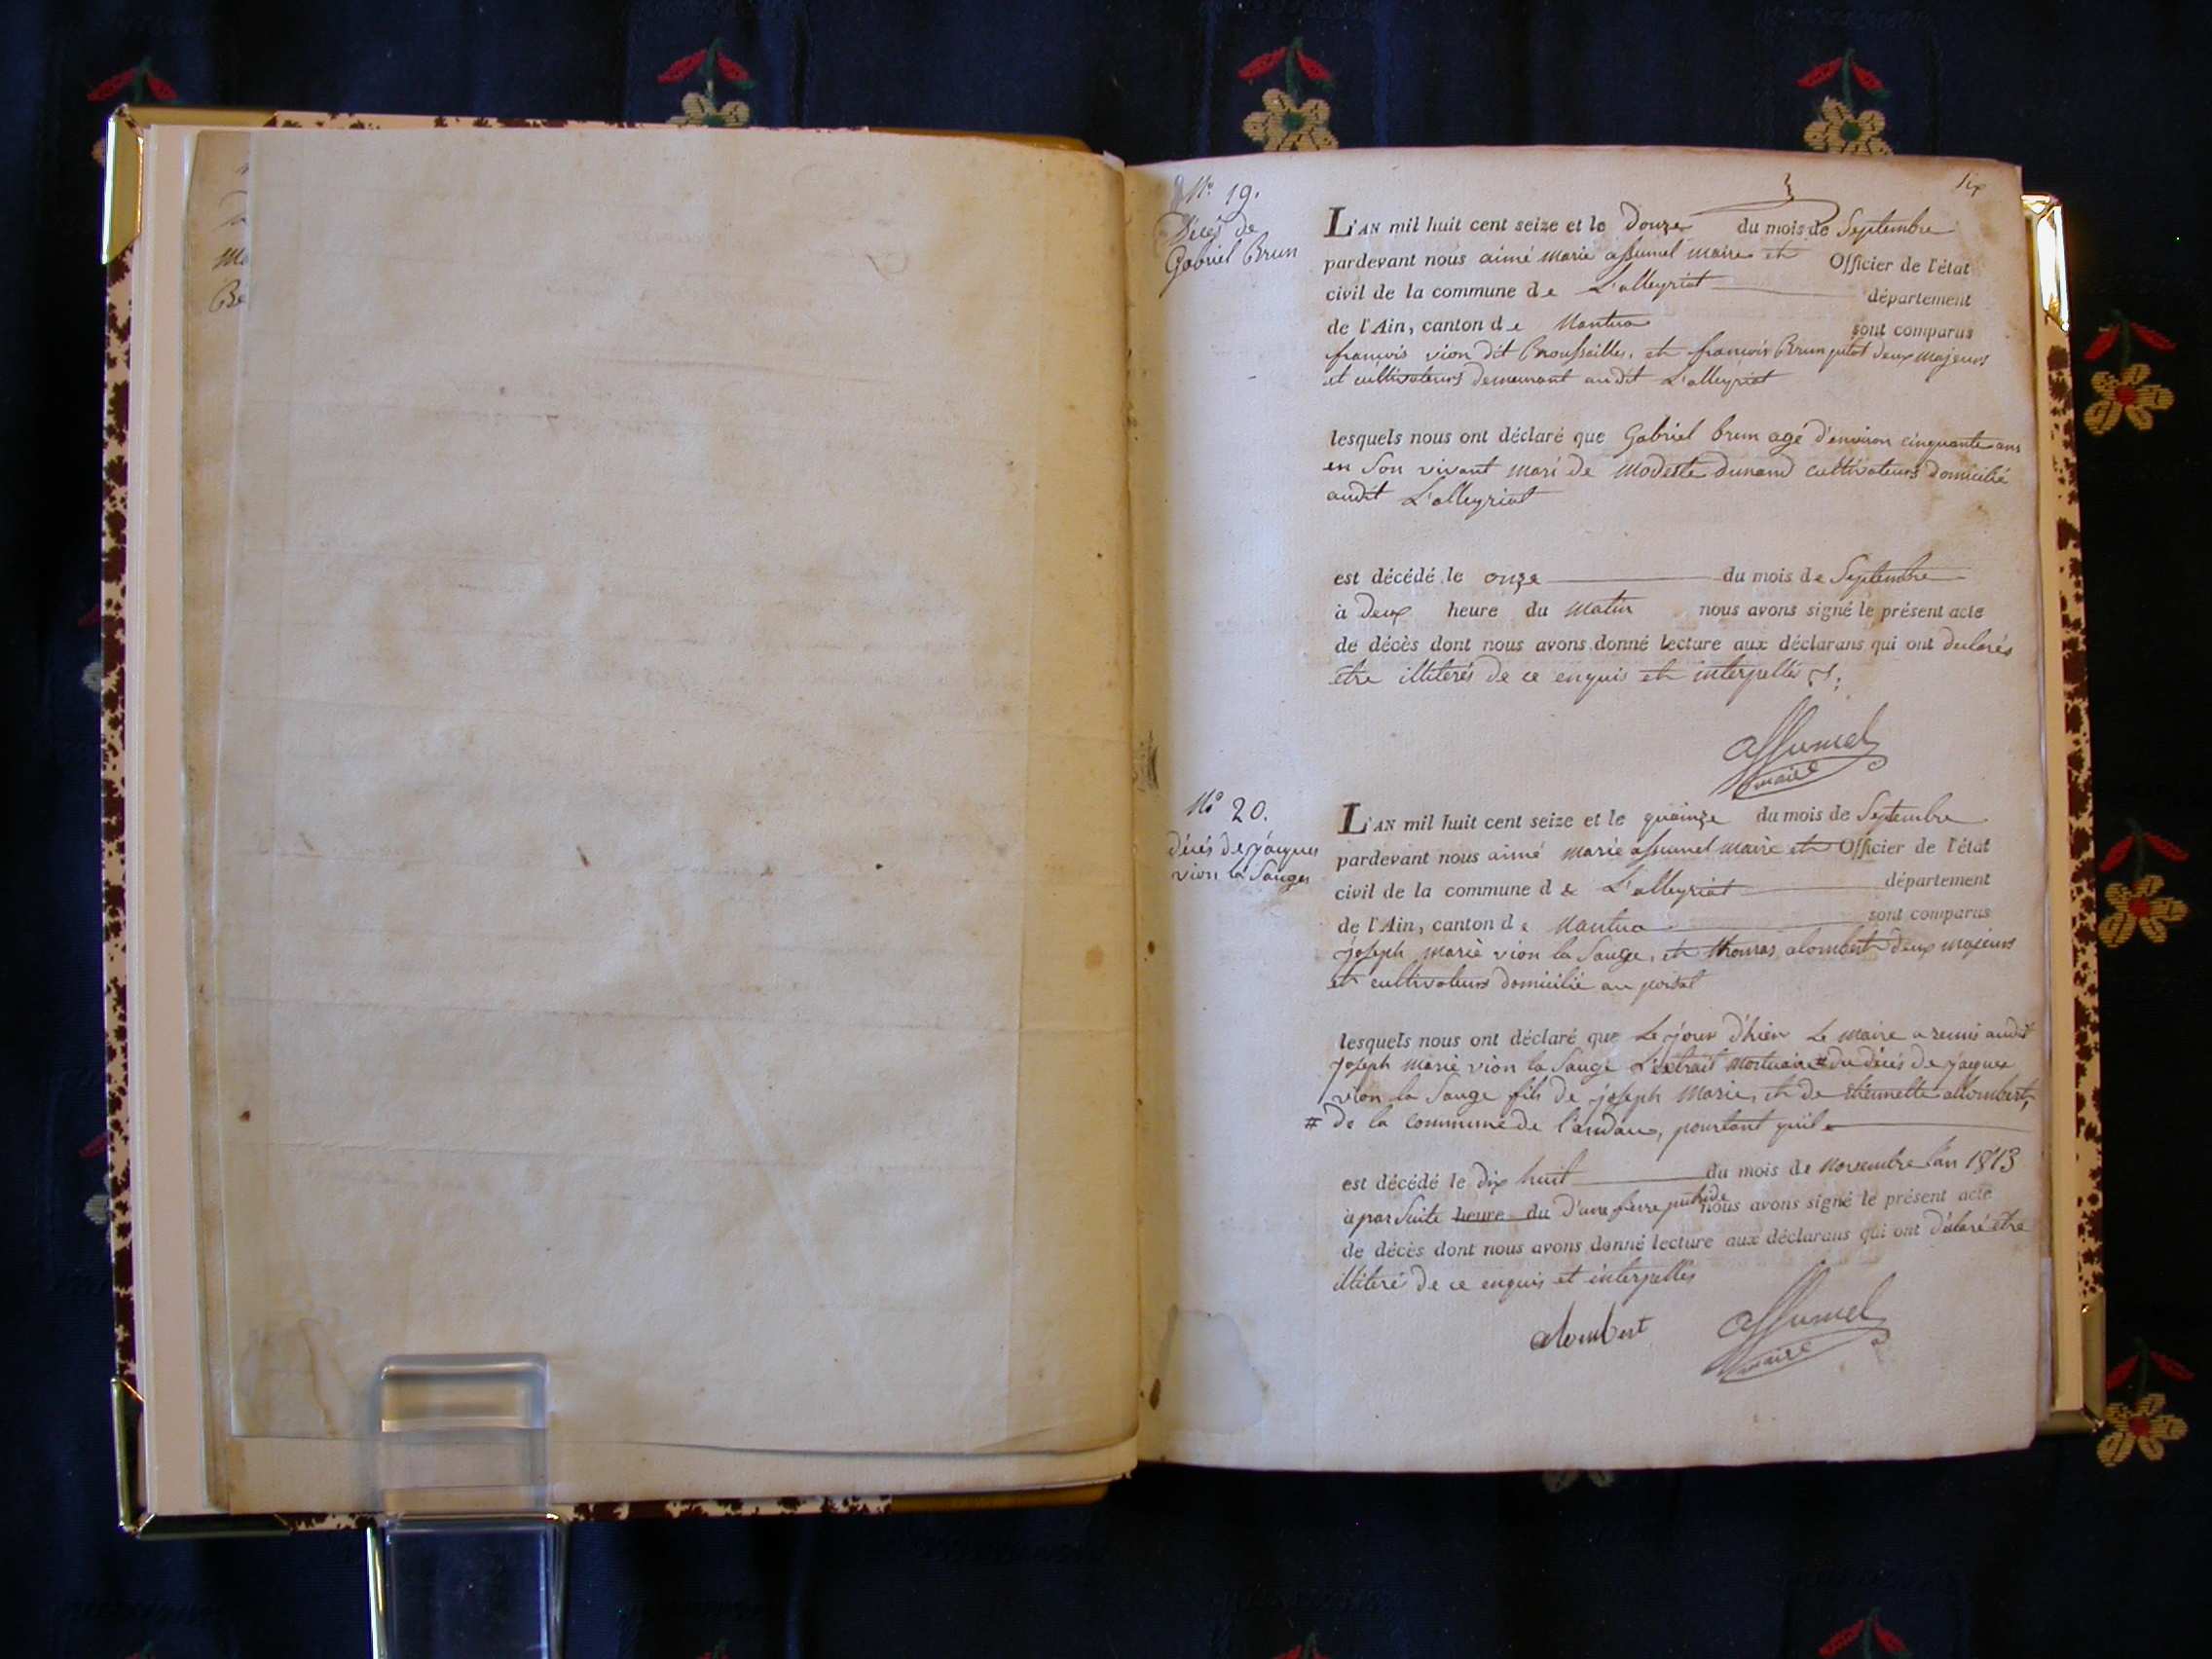 Me
Be
six
N.º 19.
Décés de
Gabriel Brun
L'AN mil huit cent seize et le Douze du mois de Septembre
pardevant nous aimé marie assumel maire et Officier de l'état
civil de la commune de L'alleyriat département
de l'Ain, canton de Nantua sont comparus
francois vion dit et francois Brun deux majeurs
et cultivateurs demeurant audit L'alleyriat
lesquels nous ont déclaré que Gabriel brun agé d'environ cinquante ans
en son vivant mari de modeste dunand cultivateurs domicilié
audit L'alleyriat
est décédé le onze du mois de Septembre
à deux heure du matin nous avons signé le présent acte
de décès dont nous avons donné lecture aux déclarans qui ont declarés
etre illiterés de ce enquis et interpellés
assumel
maire
N.º 20.
décés de jacques
vion la Sauge
L'AN mil huit cent seize et le quainze du mois de Septembre
pardevant nous aimé marie assumel maire et Officier de l'état
civil de la commune de L'alleyriat département
de l'Ain, canton de Nantua sont comparus
joseph marie vion la Sauge, et thomas alombert deux majeurs
et cultivateurs domicilié au poisat
lesquels nous ont déclaré que Le jour d'hier Le maire a remis audit
joseph marie vion la Sauge L'extrait mortuaire # du décés de jacques
vion la Sauge fils de joseph marie, et de thiennette allombert,
# de la commune de landau, pourtant quil
est décédé le dix huit du mois de novembre lan 1813
à par suite heure du d'une fievre putride nous avons signé le présent acte
de décès dont nous avons donné lecture aux déclarans qui ont déclaré etre
illiteré de ce enquis et interpellés
alombert assumel
maire